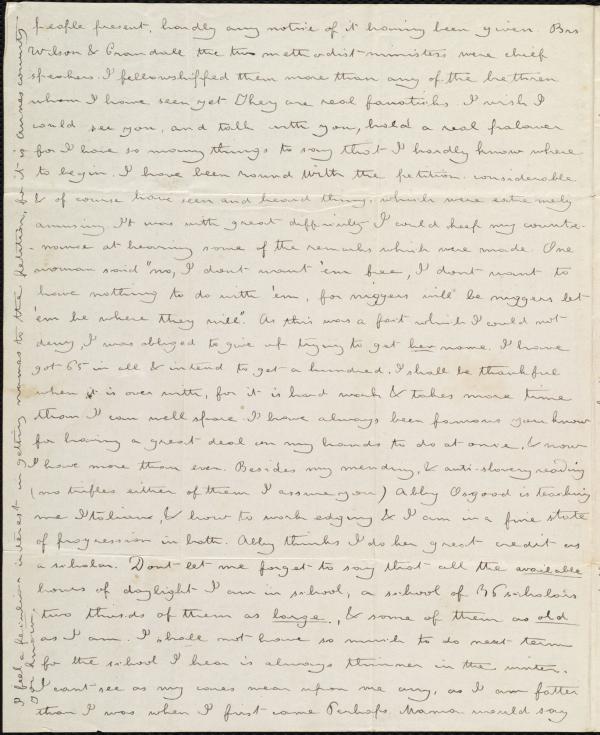 people present, hardly any notice of it having been given. Brs
Wilson & Crandall the two methodist ministers were chief
speakers. I fellowshipped them more than any of the brethren
whom I have seen yet They are real fanaticks. I wish I
could see you, and talk with you, hold a real palaver
for I have so many things to say that I hardly know where
to begin. I have been round with the petition considerable
& of course have seen and heard things which were extremely
amusing. It was with great difficulty I could keep my counte-
-nance at hearing some of the remarks which were made. One
woman said "no, I dont want 'em free, I dont want to
have nothing to do with 'em, for niggers will be niggers let
'em be where they will". As this was a fact which I could not
deny, I was obliged to give up trying to get her name. I have
got 65 in all & intend to get a hundred. I shall be thankful
when it is over with, for it is hard work & takes more time
than I can well spare I have always been famous you know
for having a great deal on my hands to do at once, & now
I have more than ever. Besides my mending, & anti-slavery reading
(no trifles either of them I assure you) Abby Osgood is teaching
me Italian, & how to work edging & I am in a fine state
of progression in both. Abby thinks I do her great credit as
a scholar. Dont let me forget to say that all the available
hours of daylight I am in school, a school of 36 scholars
two thirds of them as large, & some of them as old
as I am. I shall not have so much to do next term
for the school I hear is always thinner in the winter.
I cant see as my cares wear upon me any, as I am fatter
than I was when I first came Perhaps Mama would say
I feel a peculiar interest in getting names to the petition, for it is Annes county
you know.